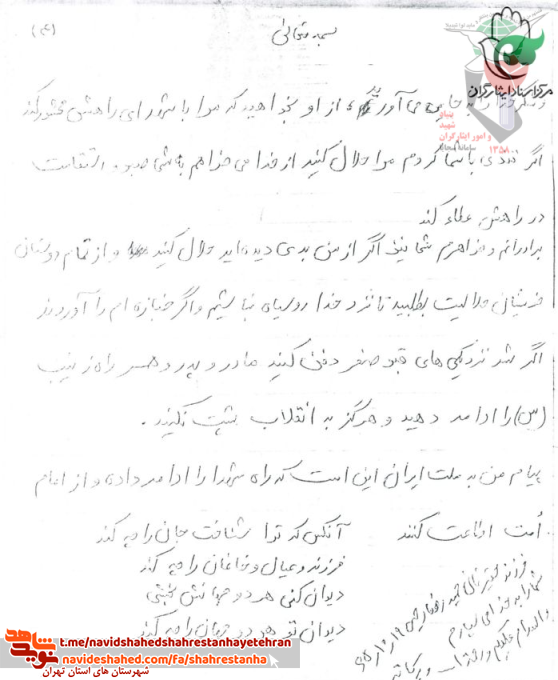 (۴)
بسمه تعالی
مرکز اسناد ایثارگران
بنیاد
شهید
و امور ایثارگران
۱۳۵۸
و شکر خدا را بجای می آورند از او بخواهید که مرا با شهدای راهش محشور کند
اگر تندی با شما کردم مرا حلال کنید از خدا می خواهم به شما صبر و استقامت
در راهش عطاء کند
برادرانم و خواهرم شما نیز اگر از من بدی دیده اید حلال کنید و از تمام دوستان
خویشان حلالیت بطلبید تا نزد خدا روسیاه نباشیم و اگر جنازه ام را آوردند
اگر شد نزدیکی های قبر صفر دفن کنید مادر و پدر و همسر راه زینب
(س) را ادامه دهید و هرگز به انقلاب پشت نکنید.
پیام من به ملت ایران این است که راه شهدا را ادامه داده و از امام
اُمت اطاعت کنند
آنکس که ترا شناخت جان را چه کند
فرزند و عیال و خانمان را چه کند
دیوانه کنی هر دو جهانش بخشی
دیوانه تو هر دو جهان را چه کند
فرزند حقیر
شما را به خدا می سپارم
والسلام علیکم و رحمة الله و برکاته
t.me/navidshahedshahrestanhayetehran
navideshahed.com/fa/shahrestanha
شهرستان های استان تهران